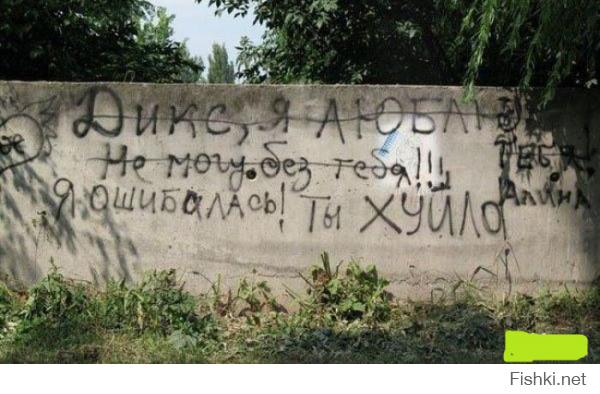 Дикс, я люблю тебя!
Не могу без тебя!!!
Алина
Я ошибалась! Ты хуйло
Fishki.net